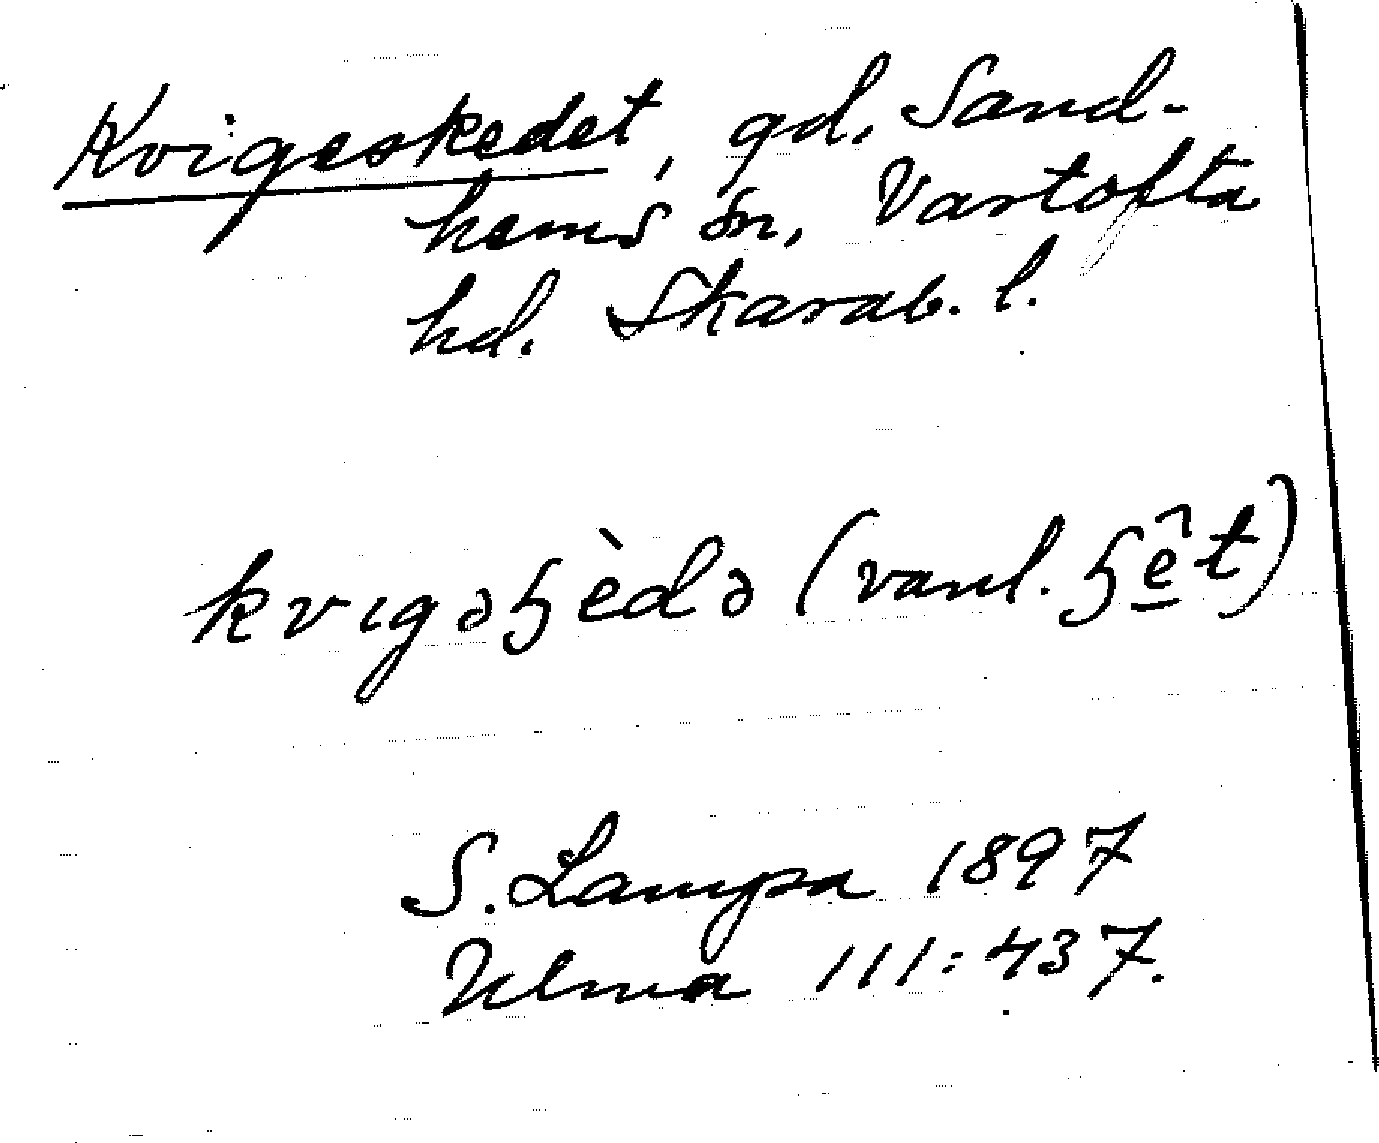 Kvigeskedet, gd, Sand-
hems sn, Vartofta
hd. Skarab. l.
kvıgəɧèdə (vanl. ɧê̲t)
S. Lampa 1897
Ulma 111:437.